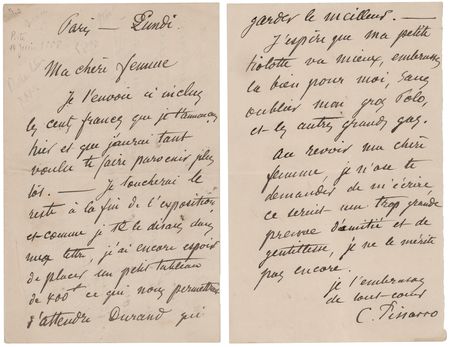 Paris — Lundi.
Ma chèri femme
Je t'envoie ci inclus
les cent francs que je t'annonçais
hier et que j'aurai tant
voulu te faire parvenir plus
tôt. — Je toucherai le
reste à la fin de l'exposition
et comme je te le disais dans
ma lettre, j'ai encore espoir
de placer un petit tableau
de 400f ce qui nous permettrait
d'attendre Durand qui
garder le meilleur. —
J'espère que ma petite
Kokotte va mieux, embrasse
la bien pour moi, sans
oublier mon gros Polo,
et les autres grands gas.
Au revoir ma chèri
femme, je n'ose te
demander de m'écrire
ce serait une trop grande
preuve d'amitié et de
gentillesse, je ne le mérite
pas encore.
je t'embrasse
de tout cœur
C. Pissarro